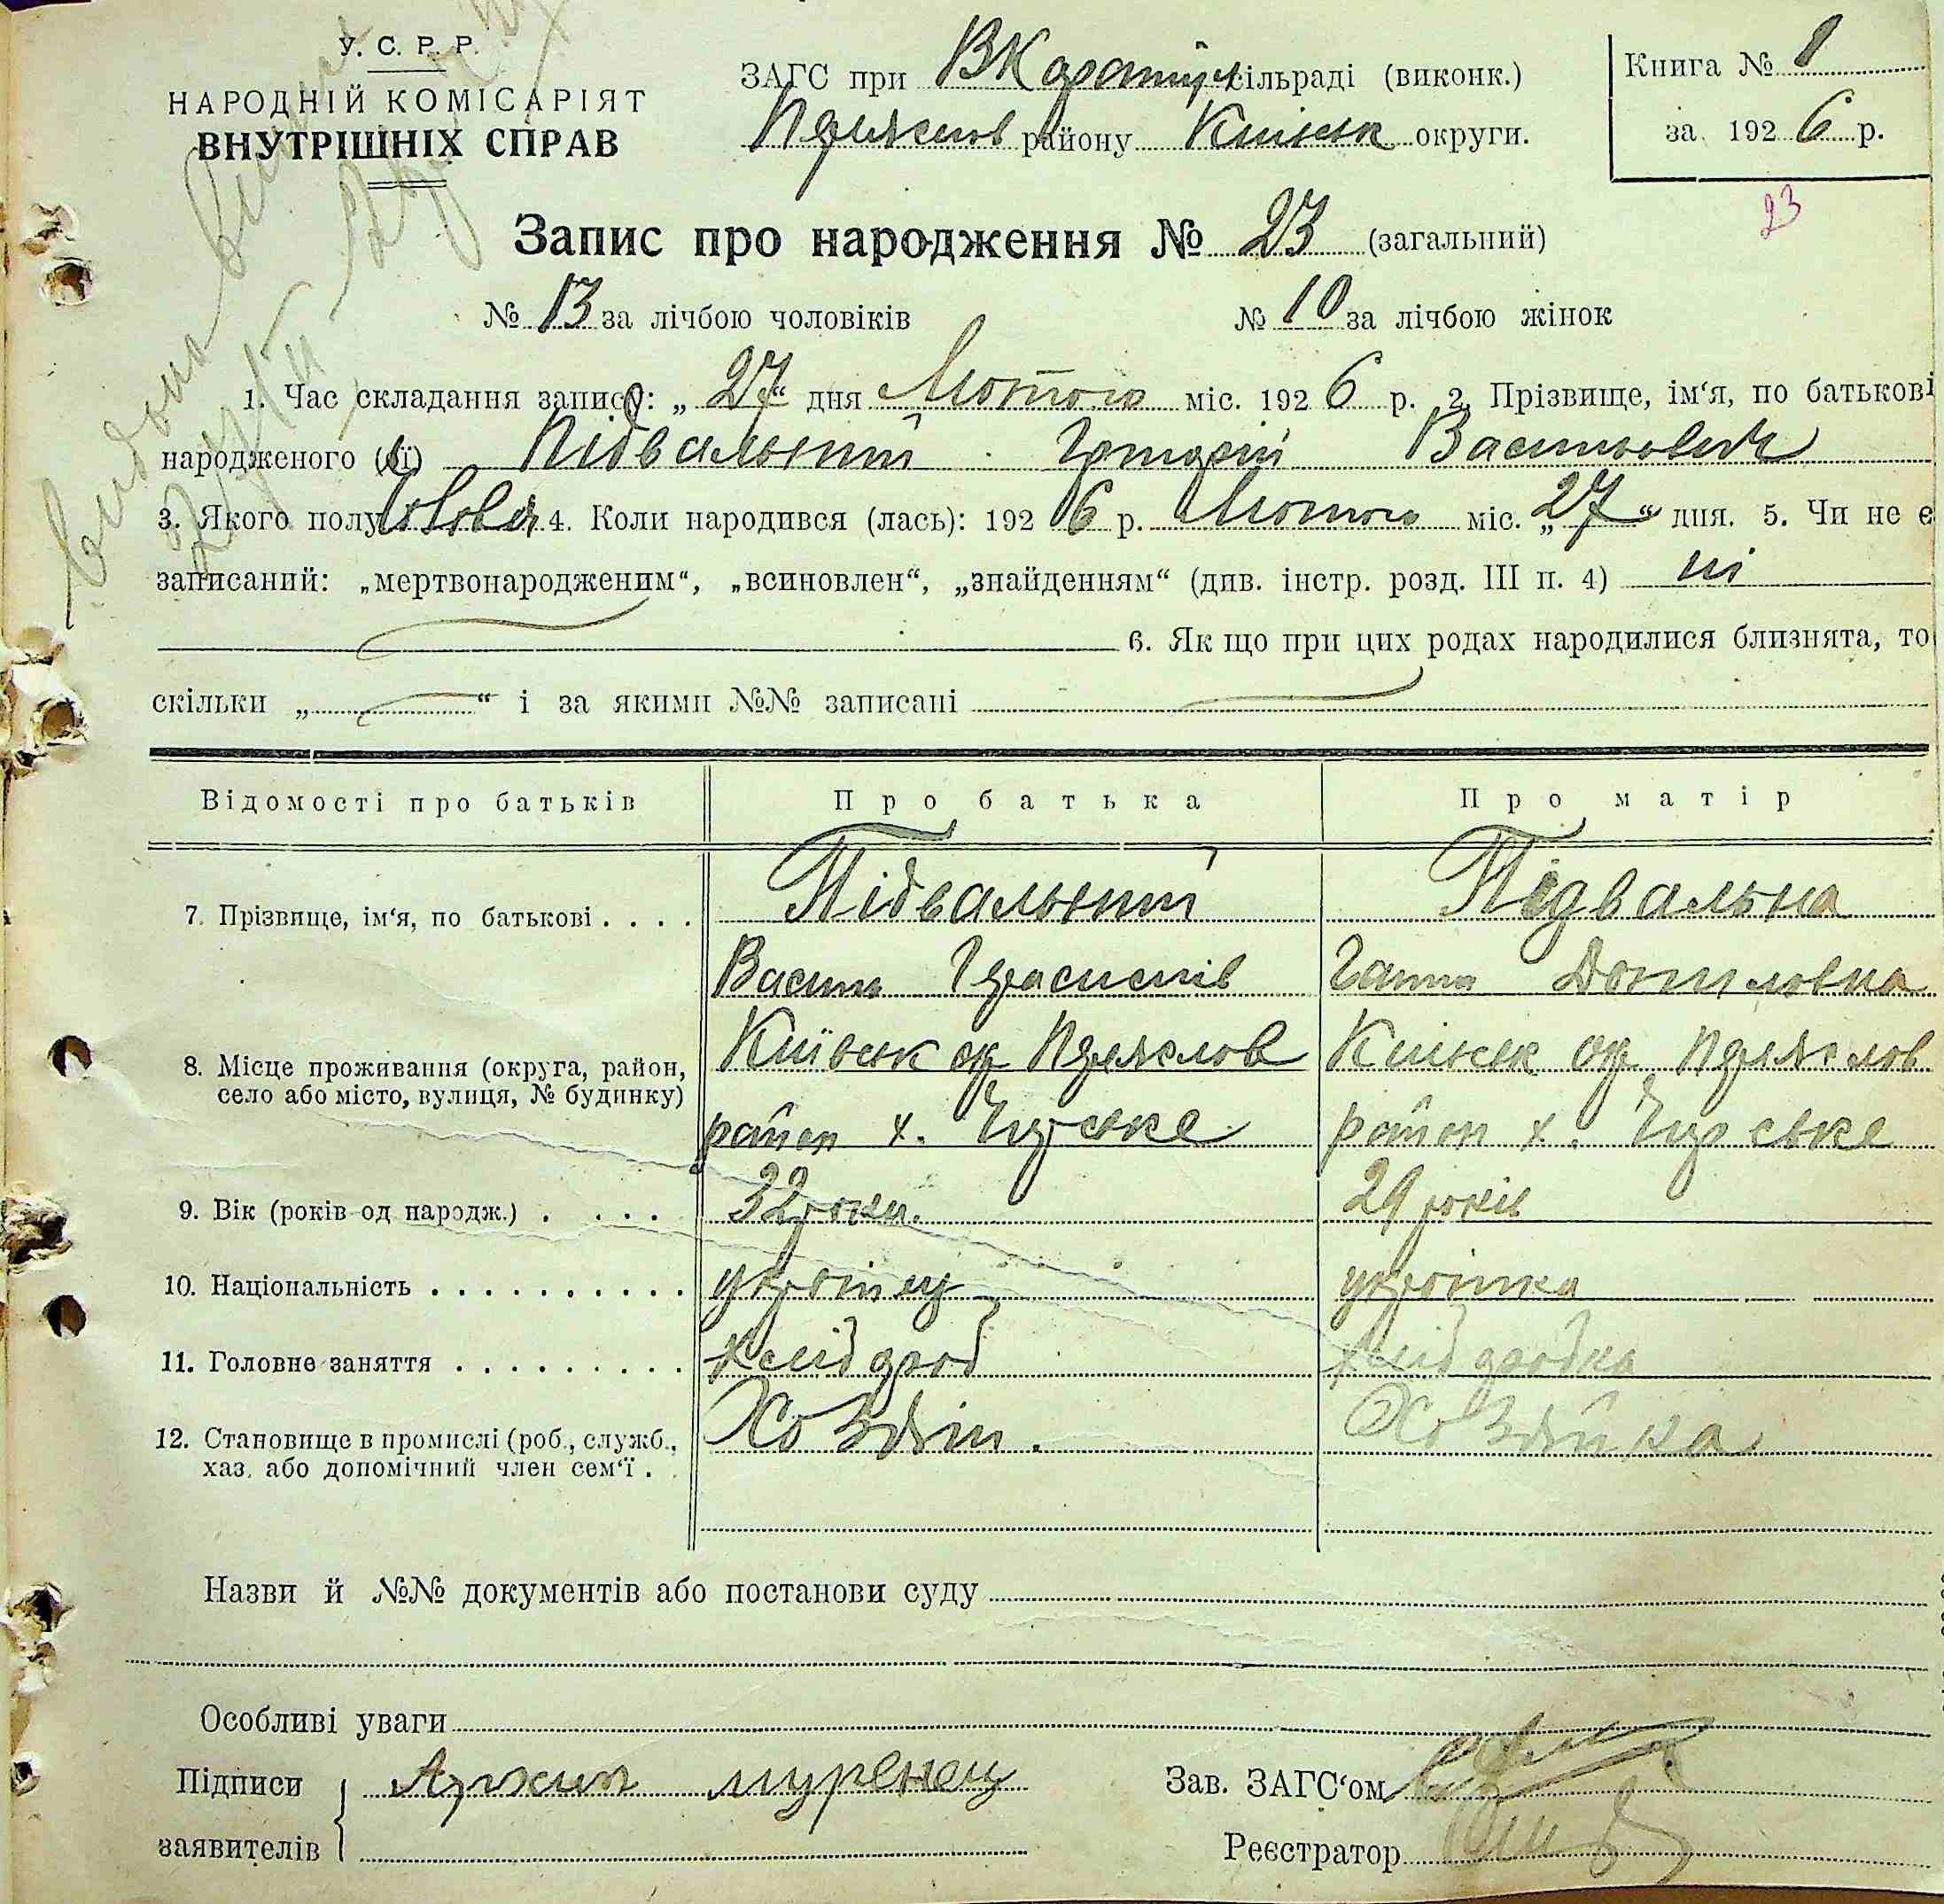 У. С. Р. Р.
НАРОДНІЙ КОМІСАРІЯТ
ВНУТРІШНІХ СПРАВ
ЗАГС при ВКаратул сільраді (виконк.)
Переяслов району Київськ округи.
Книга № 1
за 1926 р.
23
Запис про народження № 23 (загальний)
№ 13 за лічбою чоловіків № 10 за лічбою жінок
1. Час складання запису: „27“ дня Лютого міс. 1926 р. 2. Прізвище, ім‘я, по батькові
народженого (ої) Підвальний Григорій Васильович
3. Якого полу чолов 4. Коли народився (лась): 1926 р. Лютого міс. „27“ дня. 5. Чи не є
записаний: „мертвонародженим“, „всиновлен“, „знайденням“ (див. інстр. розд. III п. 4) ні
6. Як що при цих родах народилися близнята, то
скільки „ “ і за якими №№ записані
Відомості про батьків Про батька Про матір
7. Прізвище, ім‘я, по батькові . . . . Підвальний Підвальна
Василь Герасимів Ганна Даниловна
8. Місце проживання (округа, район, Київськ окр Переяслов Київськ окр Переяслов
село або місто, вулиця, № будинку) район х. район х.
9. Вік (років од народж.) . . . . 32 роки. 29 років
10. Національність . . . . . . . . . . українец українка
11. Головне заняття . . . . . . . . . хлібороб хліборобка
12. Становище в промислі (роб., служб., Хозяїн. Хозяйка
хаз. або допомічний член сем‘ї .
Назви й №№ документів або постанови суду
Особливі уваги
Підписи
заявителів
муренец
Зав. ЗАГС‘ом
Реєстратор